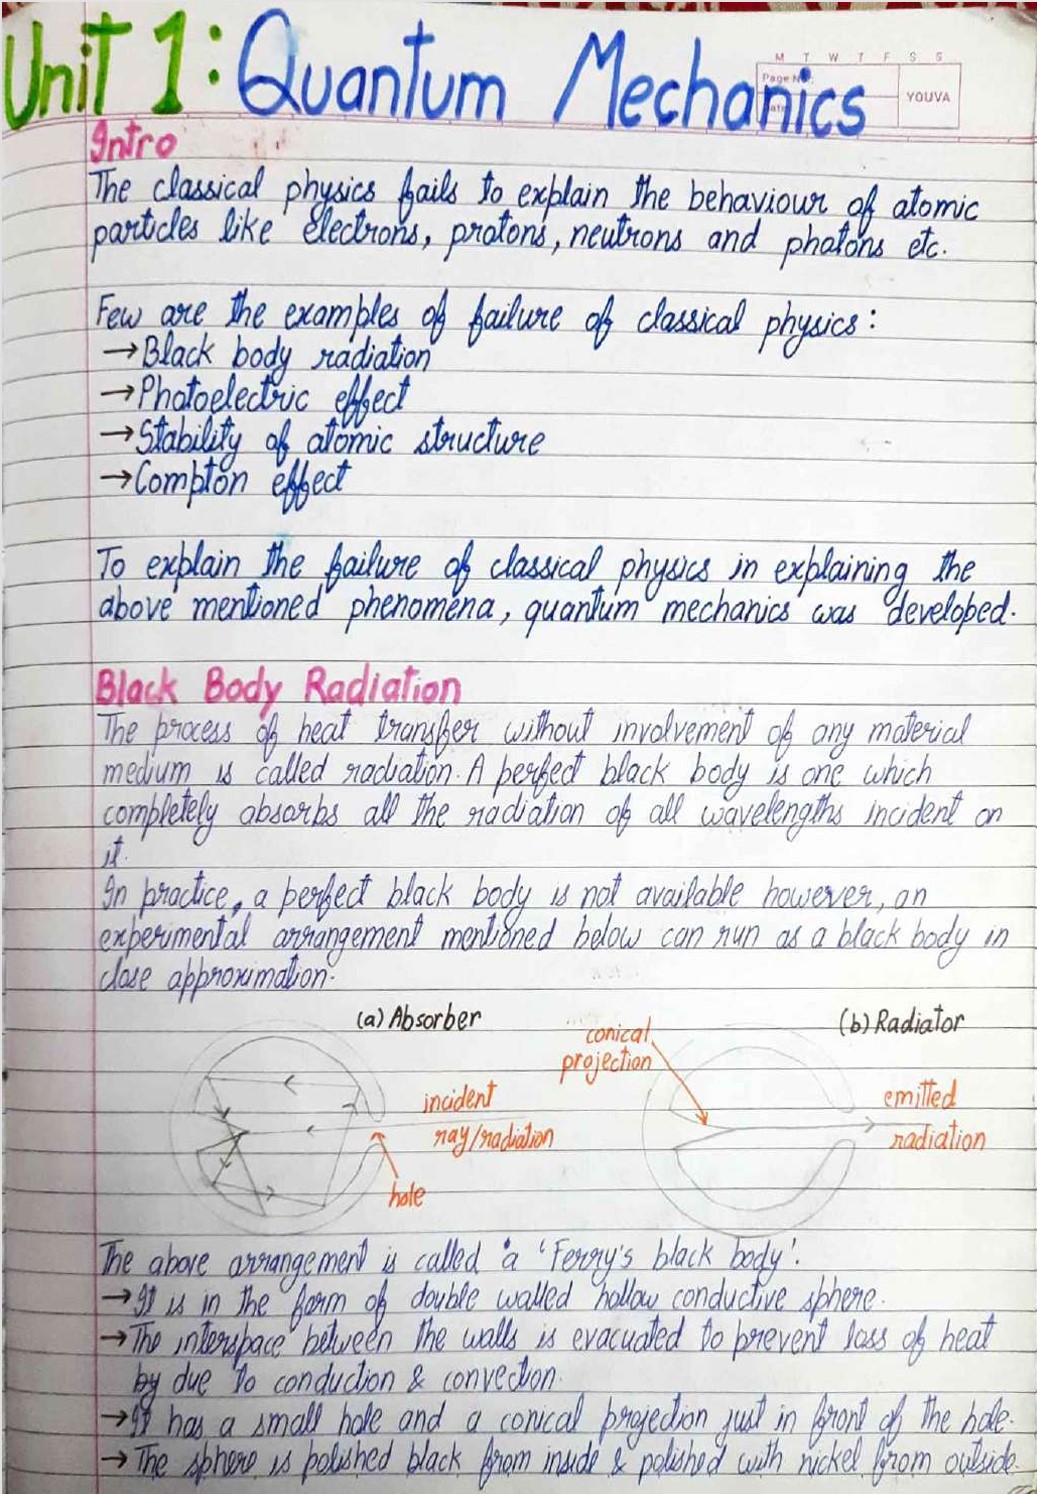 Unit 1: Quantum Mechanics
M T W T F S S
Page No.:
Date:
YOUVA
Intro
The classical physics fails to explain the behaviour of atomic
particles like electrons, protons, neutrons and photons etc.
Few are the examples of failure of classical physics:
→Black body radiation
→Photoelectric effect
→Stability of atomic structure
→Compton effect
To explain the failure of classical physics in explaining the
above mentioned phenomena, quantum mechanics was developed.
Black Body Radiation
The process of heat transfer without involvement of any material
medium is called radiation. A perfect black body is one which
completely absorbs all the radiation of all wavelengths incident on
it.
In practice, a perfect black body is not available however, an
experimental arrangement mentioned below can run as a black body in
close approximation.
(a) Absorber
conical
projection
(b) Radiator
incident
ray/radiation
hole
emitted
radiation
The above arrangement is called a 'Ferry's black body'.
→It is in the form of double walled hollow conductive sphere.
→The interspace between the walls is evacuated to prevent loss of heat
by due to conduction & convection.
→It has a small hole and a conical projection just in front of the hole.
→The sphere is polished black from inside & polished with nickel from outside.